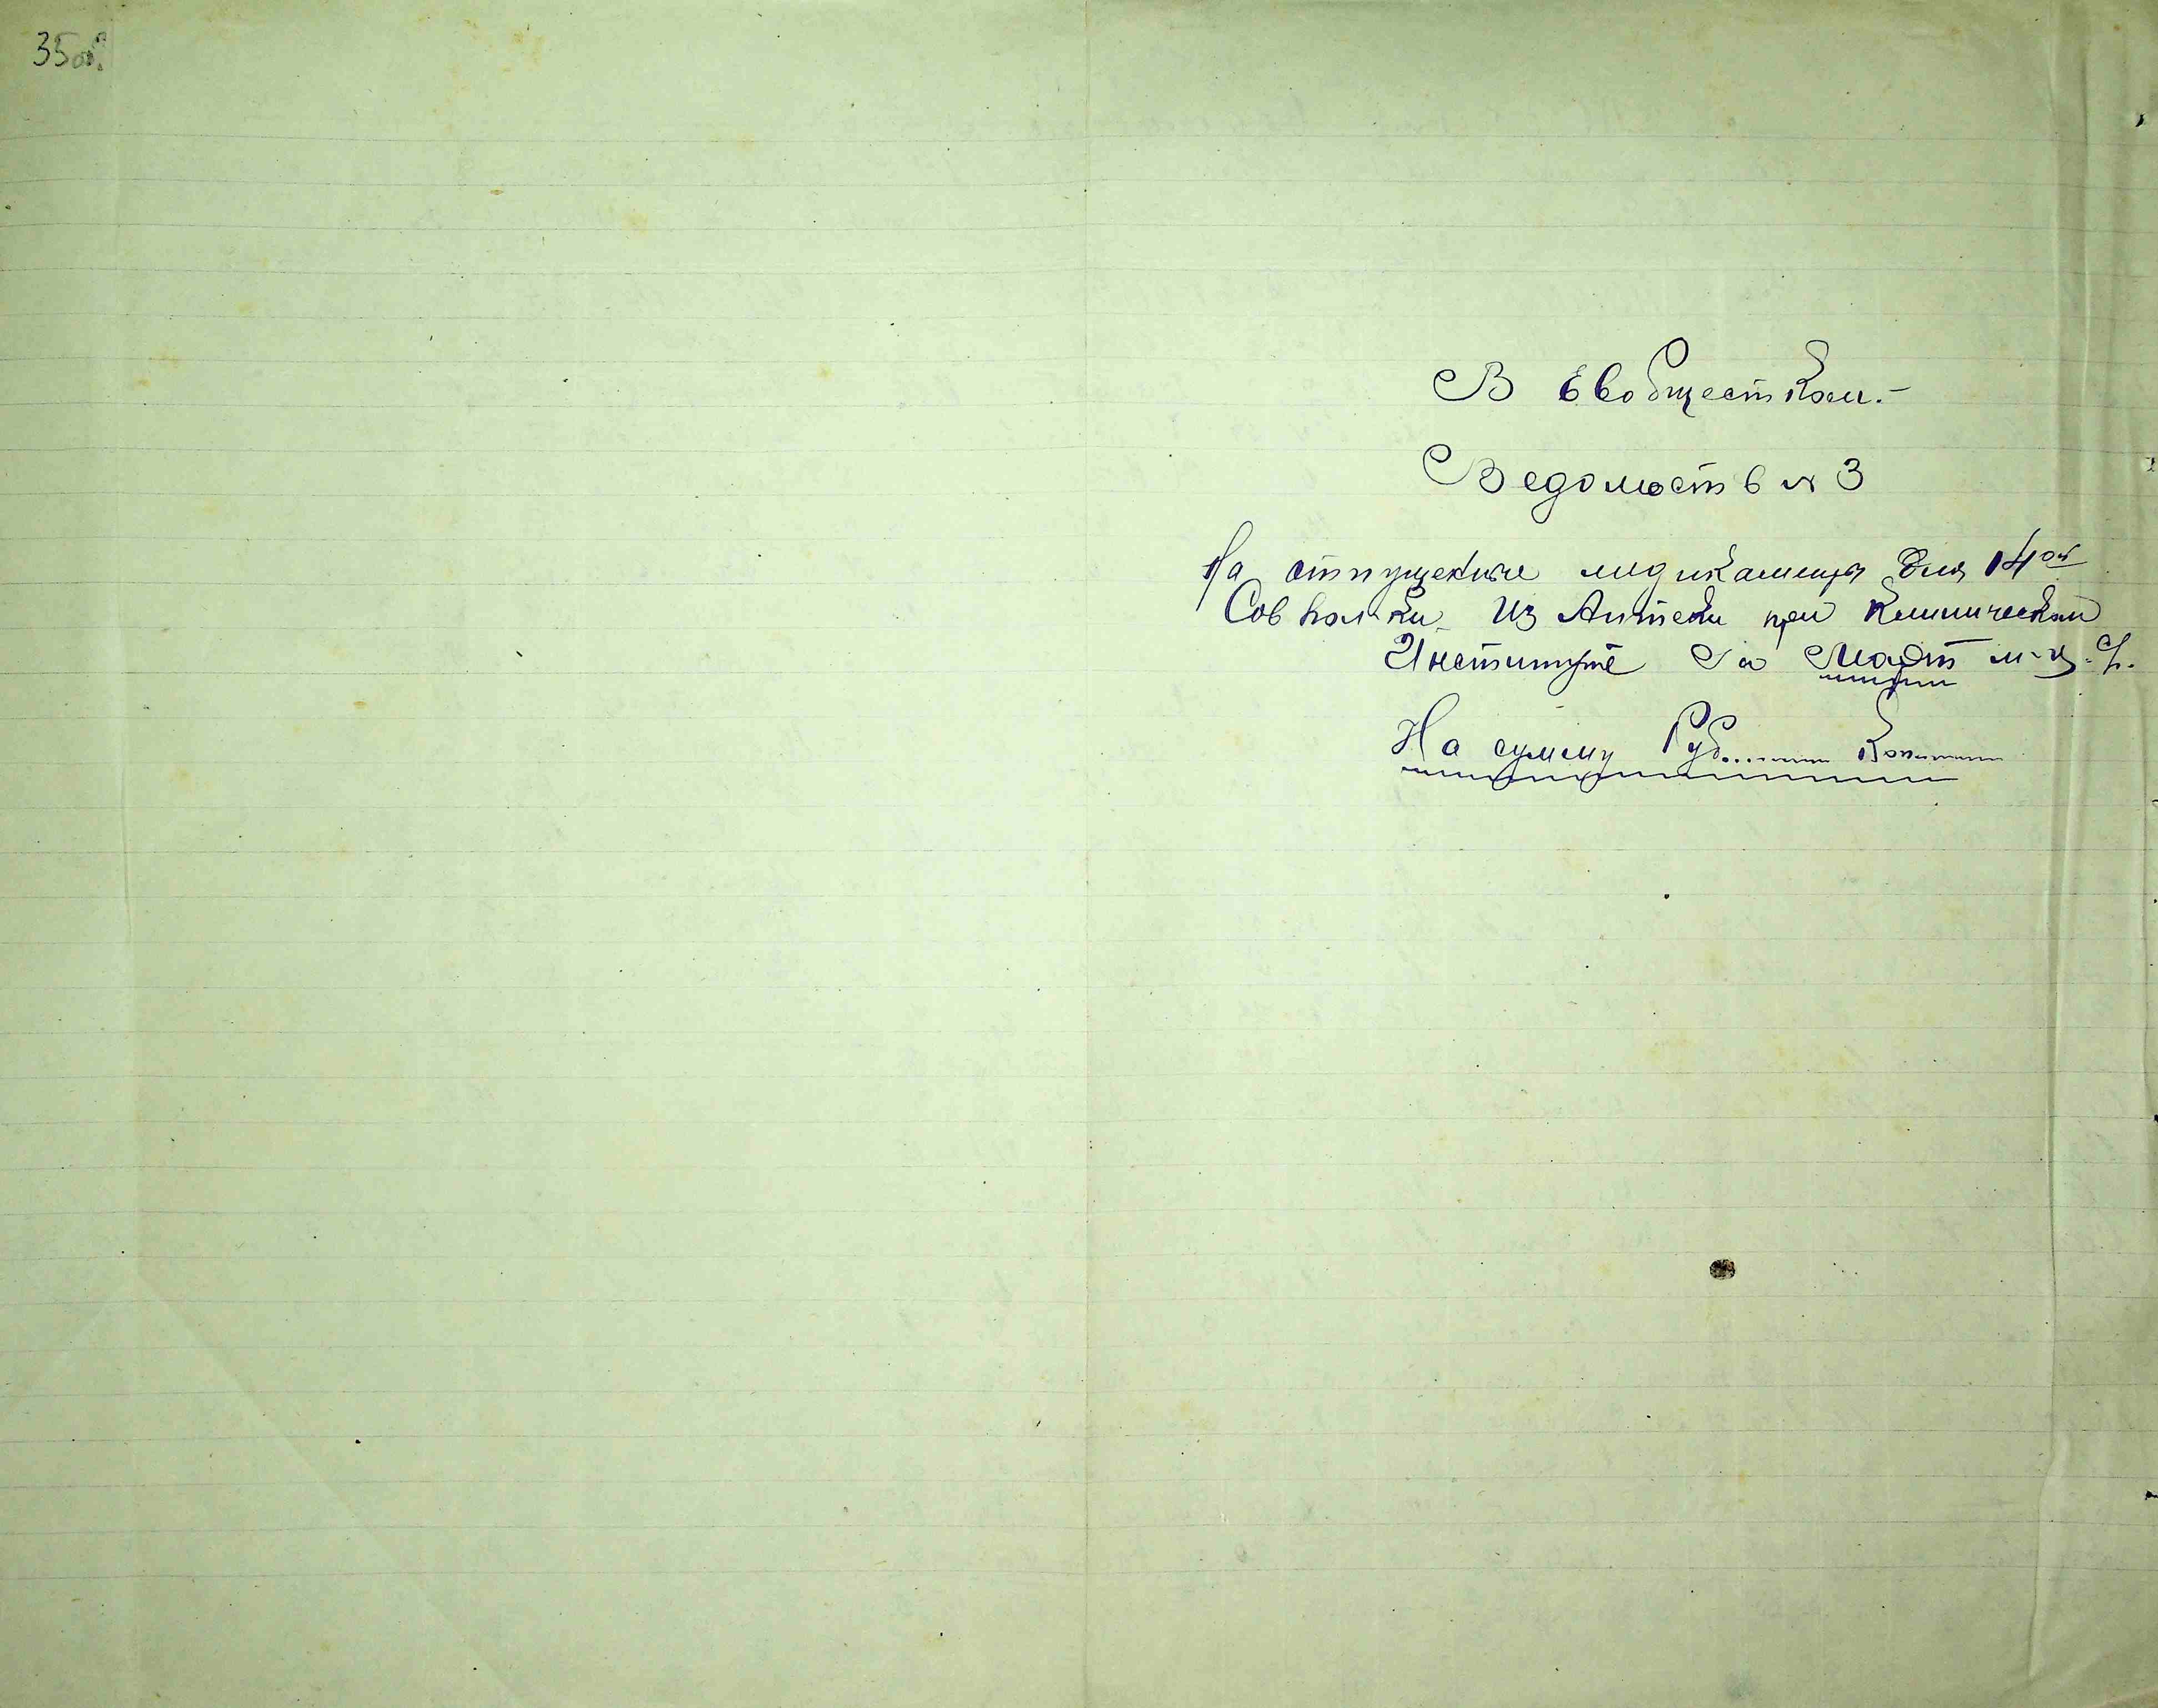 35об.
В Евобщестком.-
Ведомость № 3
На отпущеные медикаменты для 14ой
Совбол-ки Из Аптеки при Клиническом
Институте За Март м-ц. с/г.
На сумму Руб........ Коп.......